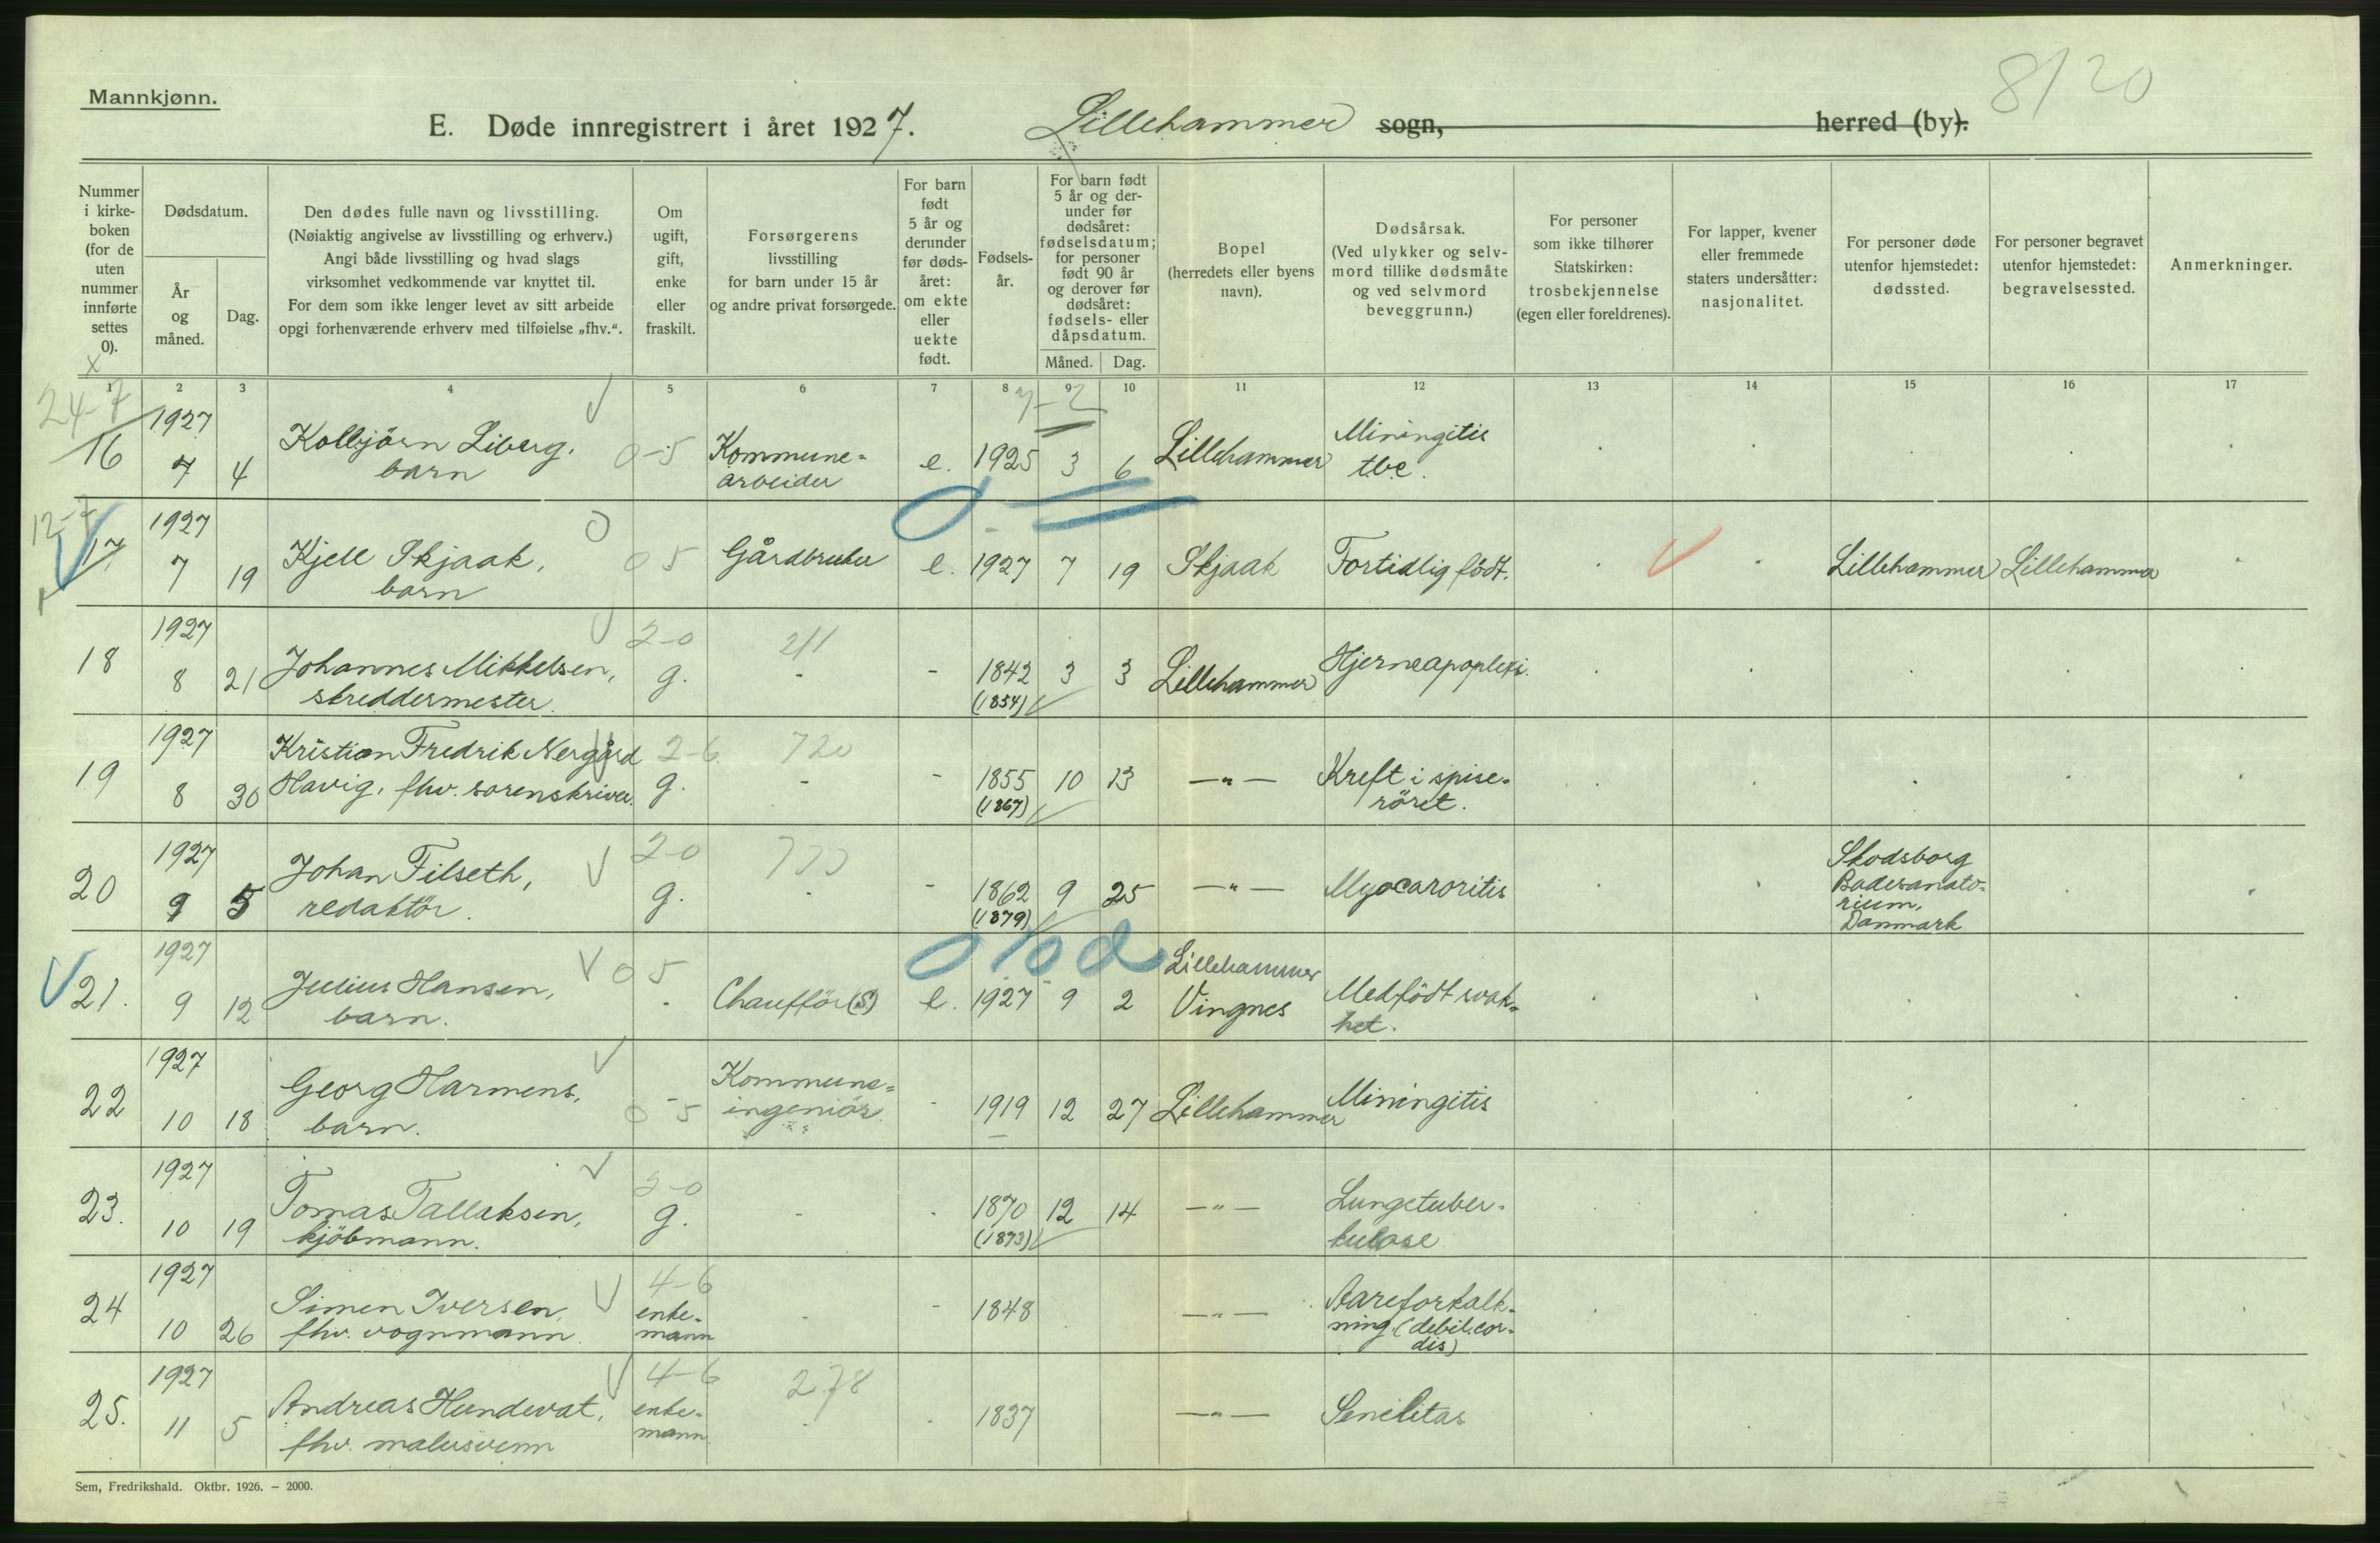 8/20
Mannkjønn.
E. Døde innregistrert i året 1927. Lillehammer sogn, herred (by).
Nummer i kirke-boken (for de uten nummer innførte settes 0).
Dødsdatum.
År og måned.
Dag.
Den dødes fulle navn og livsstilling.
(Nøiaktig angivelse av livsstilling og erhverv.)
Angi både livsstilling og hvad slags
virksomhet vedkommende var knyttet til.
For dem som ikke lenger levet av sitt arbeide
opgi forhenværende erhverv med tilføielse „fhv.“.
Om ugift, gift, enke eller fraskilt.
Forsørgerens
livsstilling
for barn under 15 år
og andre privat forsørgede.
For barn født 5 år og derunder før døds-året: om ekte eller uekte født.
Fødsels-år.
For barn født 5 år og der-under før dødsåret: fødselsdatum; for personer født 90 år og derover før dødsåret: fødsels- eller dåpsdatum.
Måned. Dag.
Bopel
(herredets eller byens navn).
Dødsårsak.
(Ved ulykker og selv-mord tillike dødsmåte og ved selvmord beveggrunn.)
For personer som ikke tilhører Statskirken: trosbekjennelse (egen eller foreldrenes).
For lapper, kvener eller fremmede staters undersåtter: nasjonalitet.
For personer døde utenfor hjemstedet: dødssted.
For personer begravet utenfor hjemstedet: begravelsessted.
Anmerkninger.
1 2 3 4 5 6 7 8 9 10 11 12 13 14 15 16 17
24-7
7-2
16 1927 7 4 Kolbjörn Liberg, barn 0-5 Kommune-arbeider e. 1925 3 6 Lillehammer Miningitis tbc.
12-7
17 1927 7 19 Kjell Skjaak, barn 0 5 Gårdbruker e. 1927 7 19 Skjaak Fortidlig födt. Lillehammer Lillehammer
18 1927 8 21 Johannes Mikkelsen, skreddermester. 2-0 g. 211 - - 1842 (1854) 3 3 Lillehammer Hjerneapoplexi.
19 1927 8 30 Kristian Fredrik Nergård Havig, fhv. sorenskriver. 2-6 g. 720 - - 1855 (1867) 10 13 —"— Kreft i spise-röret.
20 1927 9 5 Johan Filseth, redaktör. 2-0 g. - - 1862 (1879) 9 25 —"— Myocaroritis Skodsborg Badesanato-rium, Danmark
21. 1927 9 12 Julius Hansen, barn. 0 5 Chaufför (S) e. 1927 9 2 Lillehammer Vingnes Medfödt svak-het.
22 1927 10 18 Georg Harmens, barn. 0-5 Kommune-ingeniör - 1919 12 27 Lillehammer Miningitis
23. 1927 10 19 Tomas Tallaksen, kjöbmann. 2-0 g. - 1870 (1873) 12 14 —"— Lungetuber-kulose
24 1927 10 26 Simen Iversen, fhv. vognmann. 4-6 enke-mann - 1848 —"— Aareforkalk-ning (debil.cor-dis)
25. 1927 11 5 Andreas Hundevat, fhv. malersvenn 4-6 enke-mann. 278 1837 —"— Senilitas
Sem, Fredrikshald. Oktbr. 1926. – 2000.